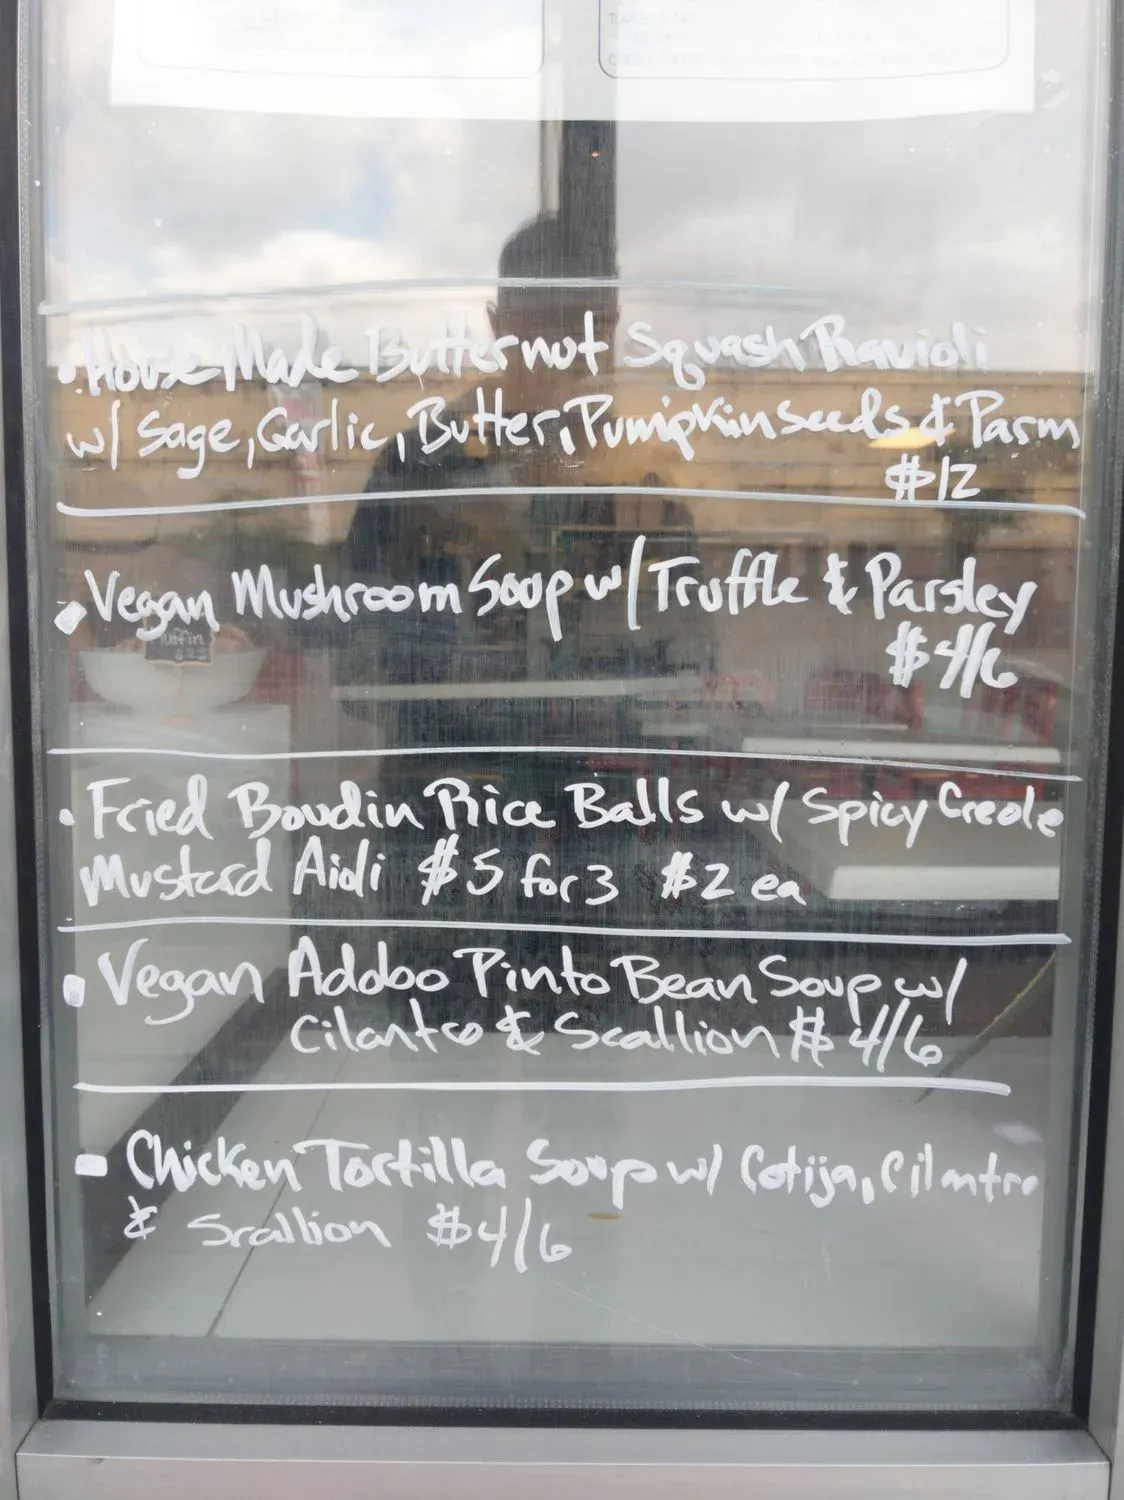 • House Made Butternut Squash Ravioli
w/ Sage, Garlic, Butter, Pumpkinseeds & Parm
$12
• Vegan Mushroom Soup w/ Truffle & Parsley
$4/6
• Fried Boudin Rice Balls w/ Spicy Creole
Mustard Aioli $5 for 3 $2 ea
• Vegan Adobo Pinto Bean Soup w/
Cilantro & Scallion $4/6
• Chicken Tortilla Soup w/ Cotija, Cilantro
& Scallion $4/6